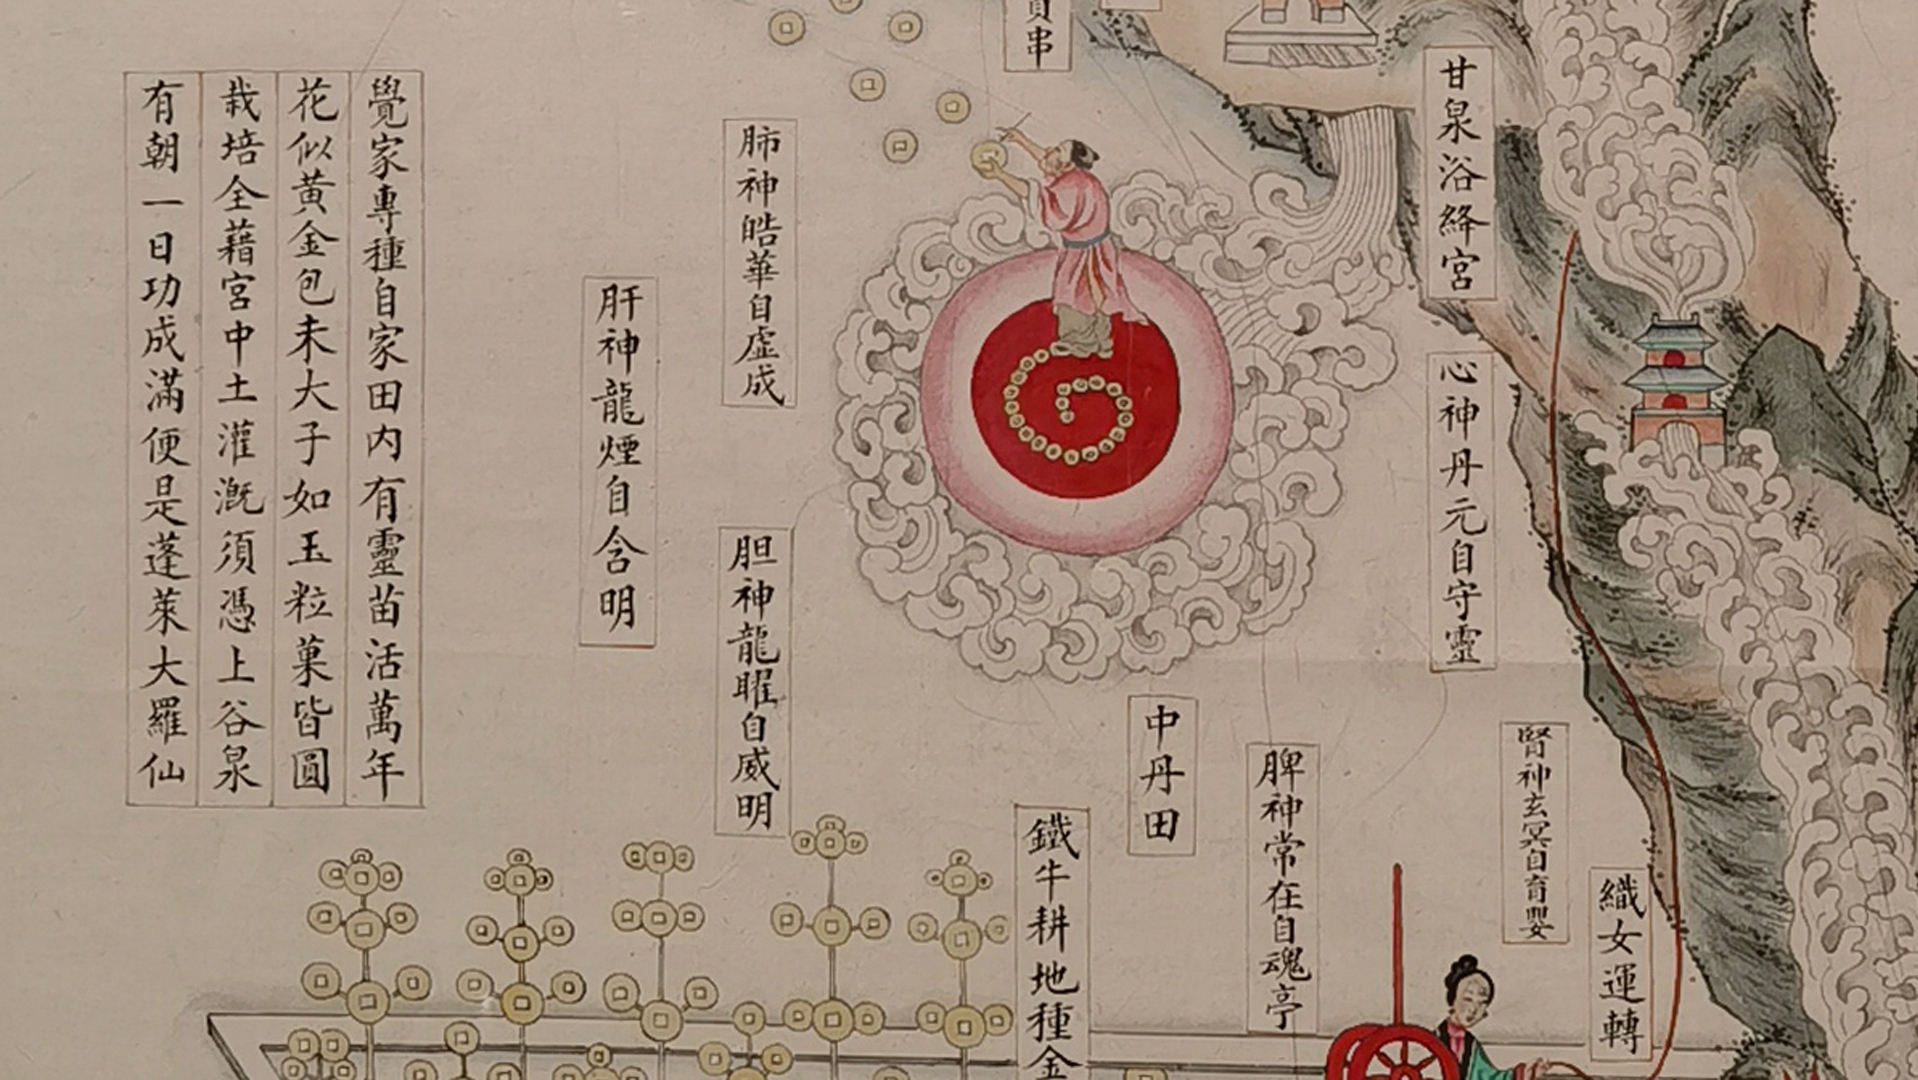 串
甘泉浴絳宮
心神丹元自守靈
腎神玄冥自育嬰
織女運轉
脾神常在自魂亭
中丹田
鐵牛耕地種金
肺神皓華自虛成
胆神龍曜自威明
肝神龍煙自含明
覺家專種自家田内有靈苗活萬年
花似黃金包未大子如玉粒菓皆圓
栽培全藉宮中土灌溉須憑上谷泉
有朝一日功成滿便是蓬萊大羅仙